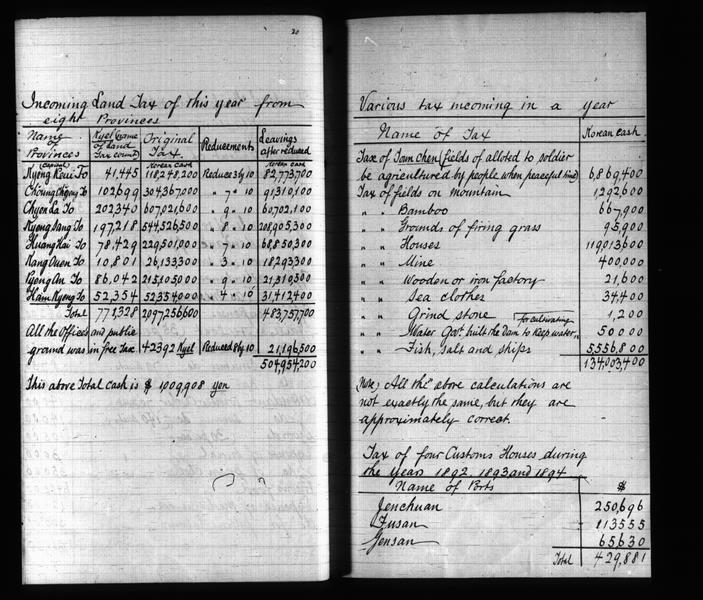 20
Incoming Land Tax of this year from
eight Provinces
Name of Provinces | Kyel (name of Land Tax count) | Original Tax. | Reducements | Leavings after reduced
(Capital) | Korean Cash | Korean Cash
Kyeng Keui To | 41,445 | 118,248,200 | Reduce 3 by 10 | 82,773,700
Choung Chyeng To | 102,699 | 304,367,000 | " 7 " 10 | 91,310,100
Chyen La To | 202,340 | 607,021,600 | " 9 " 10 | 60,702,100
Kyeng Sang To | 197,218 | 544,526,500 | " 8 " 10 | 208,905,300
Huang Hai To | 78,429 | 229,501,000 | " 7 " 10 | 68,850,300
Kang Ouen To | 10,801 | 26,133,300 | " 3 " 10 | 18,293,300
Pyeng An To | 86,042 | 215,105,000 | " 9 " 10 | 21,510,500
Ham Kyeng To | 52,354 | 52,354,000 | " 4 " 10 | 31,412,400
Total | 771,328 | 2097,256,600 | 483,757,700
All the Offices and public
ground was in free Tax. 42392 Kyel | Reduced 8 by 10 | 21,196,500
504,954,200
This above Total cash is $ 1009908 yen
Various tax incoming in a year
Name of Tax | Korean Cash
Taxe of Toun chen (fields of alloted to soldier
be agricultured by people when peaceful time) | 6,869,400
Tax of fields on mountain | 1,292,600
" " Bamboo | 667,900
" " Grounds of firing grass | 95,900
" " Houses | 119,013,600
" " Mine | 400,000
" " Wooden or iron factory | 21,600
" " Sea clothes | 34,400
" " Grind stone | 1,200
for cultivating
" " Water Govt. built the Dam to keep water | 50,000
" " Fish, salt and ships | 5,556,800
134,003,400
Note; All the above calculations are
not exactly the same, but they are
approximately correct.
Tax of four Customs Houses during
the years 1892, 1893 and 1894
Name of Ports | $
Jenchuan | 250,696
Fusan | 113555
Jensan | 65630
Total | 429,881